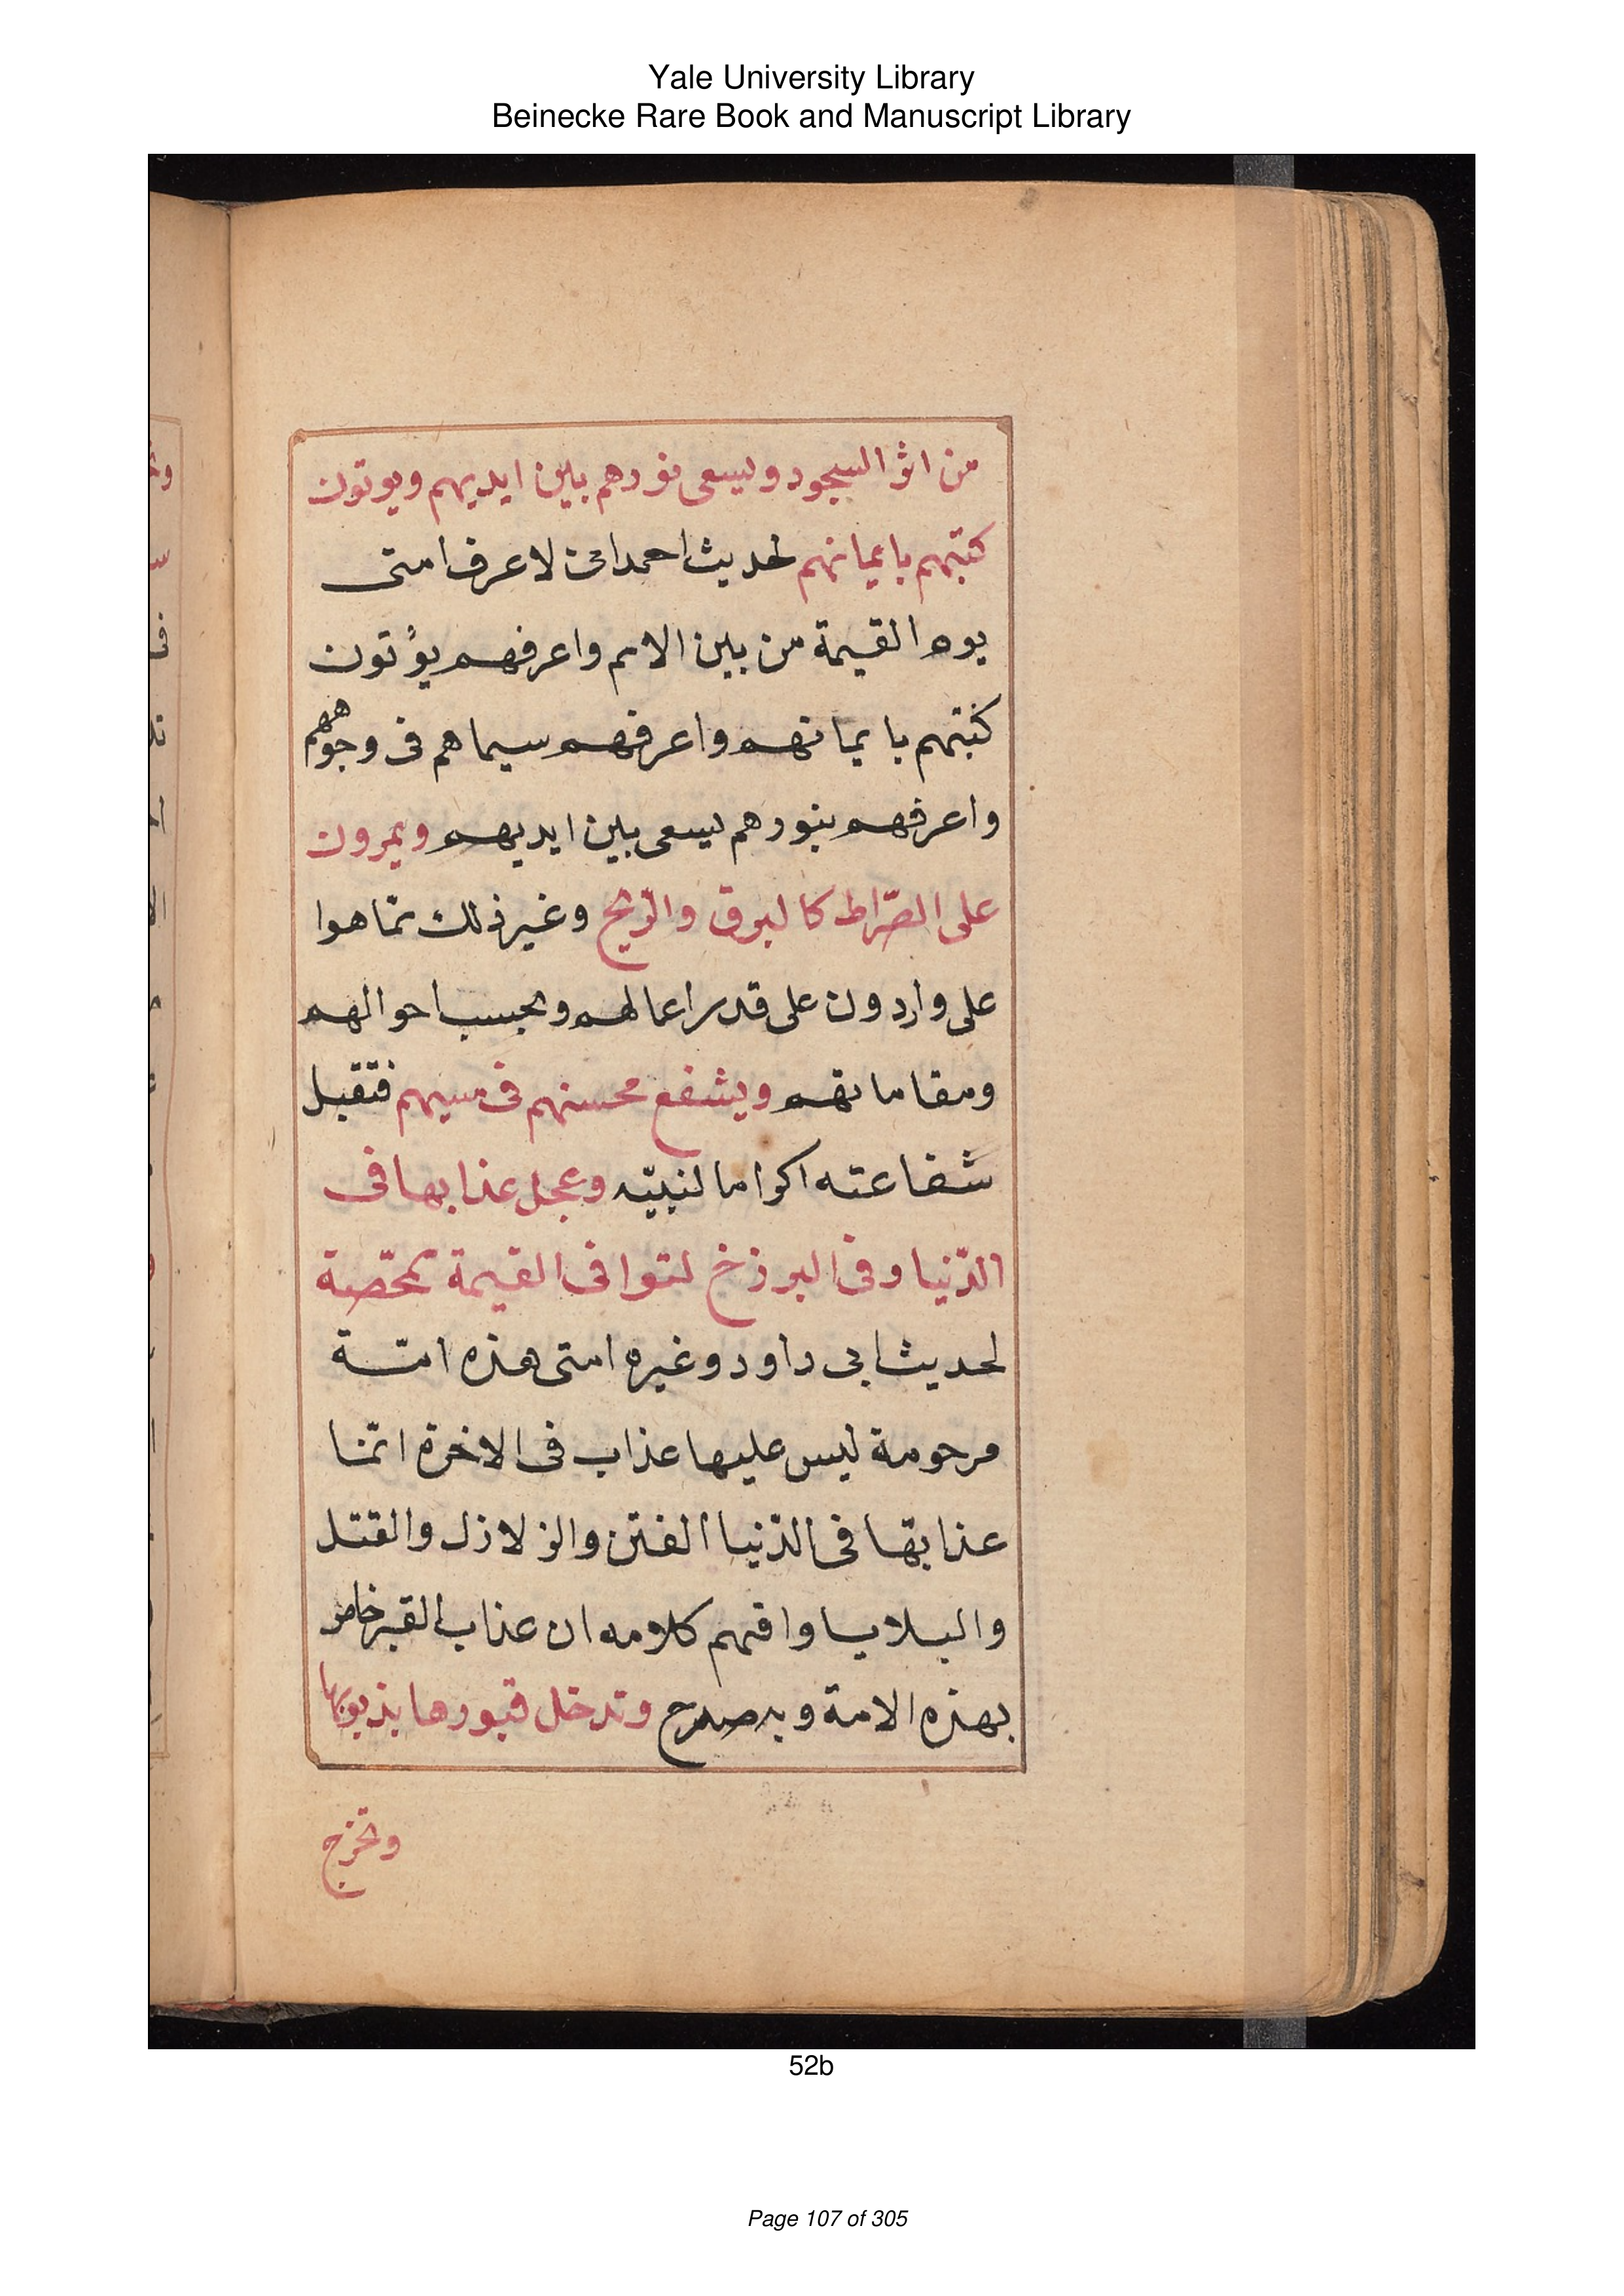 Yale University Library
Beinecke Rare Book and Manuscript Library
من اثر السجود ويسعى نورهم بين ايديهم ويوتون
كتبهم بايمانهم لحديث احمد انى لاعرف امتى
يوم القيمة من بين الامم واعرفهم يؤتون
كتبهم بايمانهم واعرفهم سيماهم فى وجوههم
واعرفهم بنورهم يسعى بين ايديهم ويمرون
على الصّراط كالبرق والرّيح وغير ذلك ممّا هوا
على واردون على قدر اعمالهم وبحسب احوالهم
ومقاماتهم ويشفع محسنهم فى مسيهم فتقبل
شفاعته اكراما لنبيّه وعجل عذابها فى
الدّنيا وفى البرزخ لتوافى القيمة ممحّصة
لحديث ابى داود وغيره امتى هذه امّة
مرحومة ليس عليها عذاب فى الاخرة انّما
عذابها فى الدّنيا الفتن والزلازل والقتل
والبلايا وافهم كلامه ان عذاب القبر خاص
بهذه الامة وبه صرح وتدخل قبورها بذنوبها
وتخرج
52b
Page 107 of 305